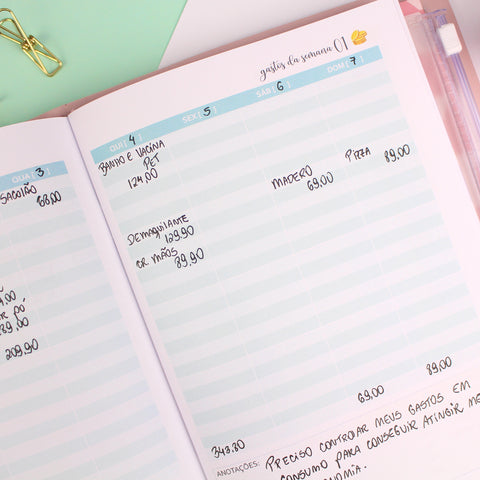 gastos da semana 01
QUA [ 3 ]
SACOLÃO
68.00
PÓ
209.90
QUI [ 4 ]
BANHO E VACINA
PET
124.00
DEMAQUILANTE
129.90
CR. MÃOS
89.90
343.80
SEX [ 5 ]
SÁB [ 6 ]
MADERO
69.00
69.00
DOM [ 7 ]
PIZZA 89.00
89.00
ANOTAÇÕES: PRECISO CONTROLAR MEUS GASTOS EM
CONSUMO PARA CONSEGUIR ATINGIR